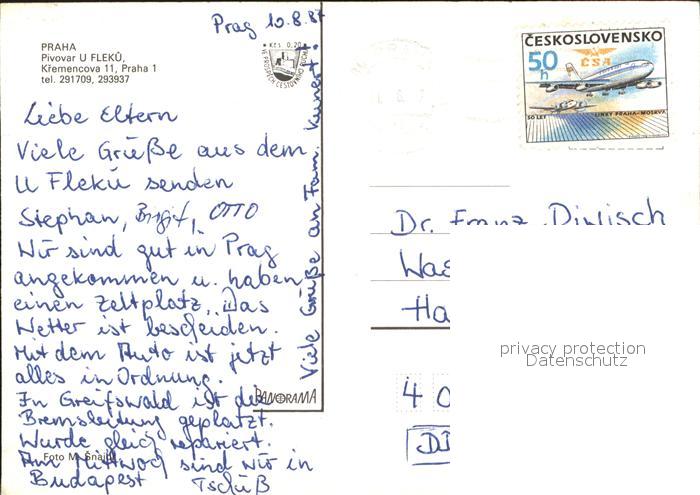 Prag 10.8.87
PRAHA
Pivovar U FLEKŮ,
Křemencova 11, Praha 1
tel. 291709, 293937
Kčs 0,20
Liebe Eltern
Viele Grüße aus dem
U Flekú senden
Stephan, Birgit, OTTO
Wir sind gut in Prag
angekommen u. haben
einen Zeltplatz. Das
Wetter ist bescheiden.
Mit dem Auto ist jetzt
alles in Ordnung.
In Greifswald ist die
Bremsleitung geplatzt.
Wurde gleich repariert.
Am Mittwoch sind wir in
Budapest Tschüß
Foto M.
Viele Grüße an Fam. Kunert.
PANORAMA
ČESKOSLOVENSKO
50 h
ČSA
50 LET LINKY PRAHA-MOSKVA
Dr. Franz Diwisch
Was
Ha
40
privacy protection
Datenschutz